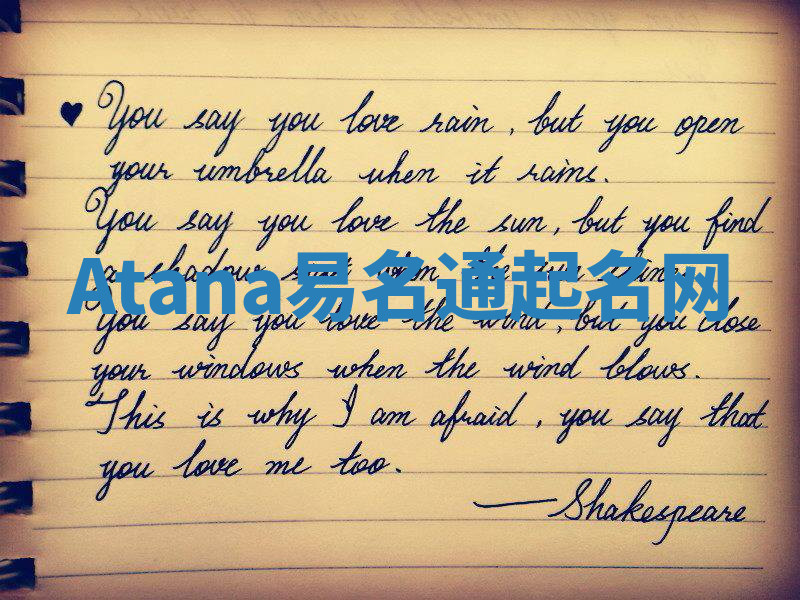 You say you love rain, but you open
your umbrella when it rains.
You say you love the sun, but you find
a shadow spot when the sun shines.
Atana易名通起名网
You say you love the wind, but you close
your windows when the wind blows.
This is why I am afraid, you say that
you love me too.
—Shakespeare